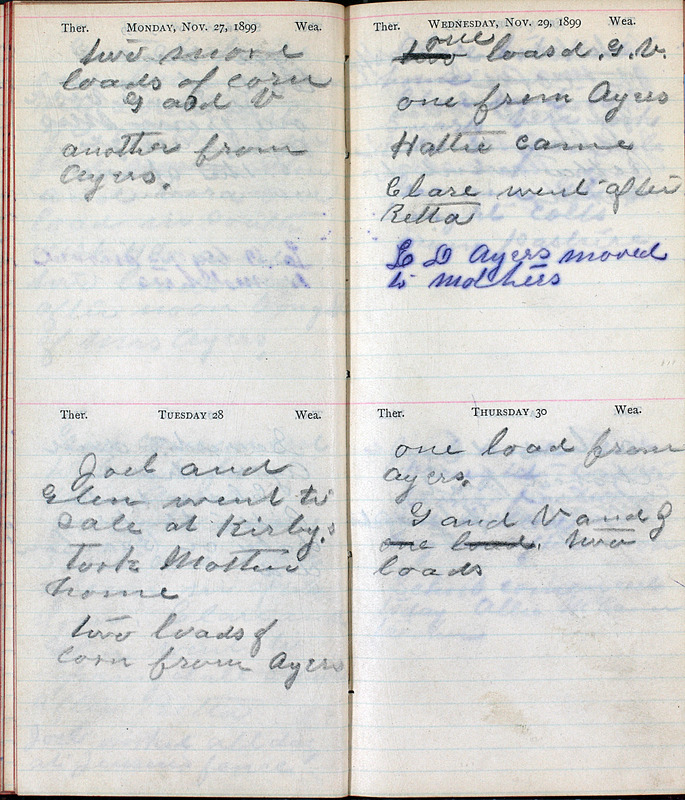 Ther. MONDAY, NOV. 27, 1899 Wea.
two more
loads of corn
G and V
another from
Ayers.
Ther. TUESDAY 28 Wea.
Joel and
Glen went to
Sale at Kirby,s
took Mother
home
two loads of
corn from Ayers
Ther. WEDNESDAY, NOV. 29, 1899 Wea.
one
two loasd. G. V.
one from Ayers
Hattie came
Clare went after
Retta
L D Ayers moved
to mothers
Ther. THURSDAY 30 Wea.
one load from
ayers.
G and V and J
one load. two
loads